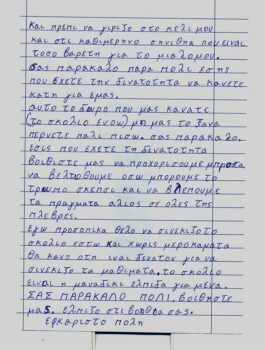 και πρεπι να γιριζο στο κελι μου
και στι καθιμερηνο σηνιθηα που ειναι
τοσο βαρετη για το μιαλομου.
σας παρακαλο παρα πολι εσης
που εχετε την δινατοτητα να κανετε
κατη για εμας.
αυτο το δωρο που μας κανατε
(το σκολιο ενοω) μη μας το ξανα
περνετε παλι πισω. σας παρακαλο.
εσις που εχετε τη δινατοτητα
βοιθιστε μας να προχορισουμε μπροστα
να βελτιοθουμε οσω μπορουμε το
τροπμο σκεψοι και να βλεπουμε
τα πραγματα αλιος σε ολες της
πλεβρες.
εγω προσοπικα θελο να σινεχιζο το
σκολιο εστω και χωρις μεροκαματα
θα κανο οτι ειναι δινατον για να
σινεχιζο τα μαθεματα. το σκολιο
ειναι η μαναδικι ελπιδα για μενα.
ΣΑΣ ΠΑΡΑΚΑΛΟ ΠΟΛΙ. βοιθηστε
μας. ελπιζο στι βοηθεα σας.
εφκαριστο πολη